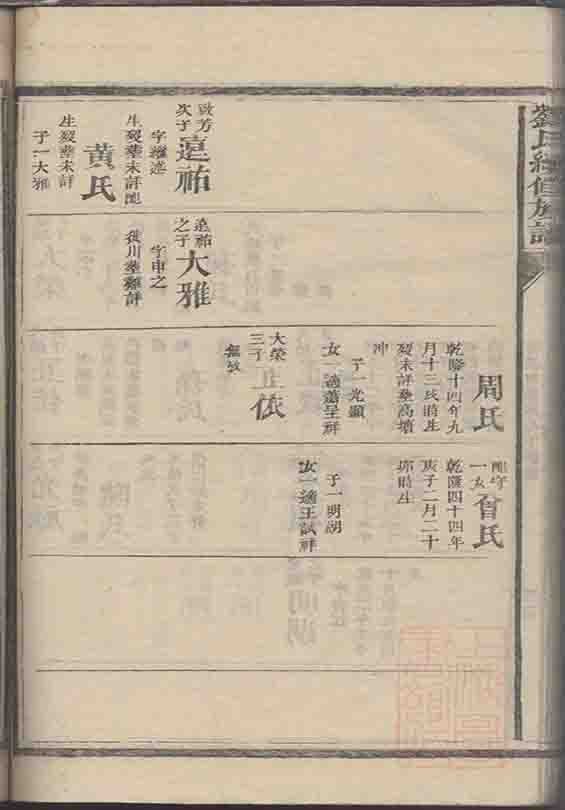 劉氏續修族譜
致芳
次子
遠祐
字繼述
生歿葬未詳配
黃氏
生歿葬未詳
子一大雅
遠祐
之子
大雅
字申之
徙川葬難詳
周氏
乾隆十四年九
月十三戌時生
歿未詳葬高壙
冲
子一光顯
女一適蕭呈祥
大榮
三子
正依
無攷
一女
曾氏
乾隆四十四年
庚子二月二十
卯時生
子一明湖
女一適王試祥